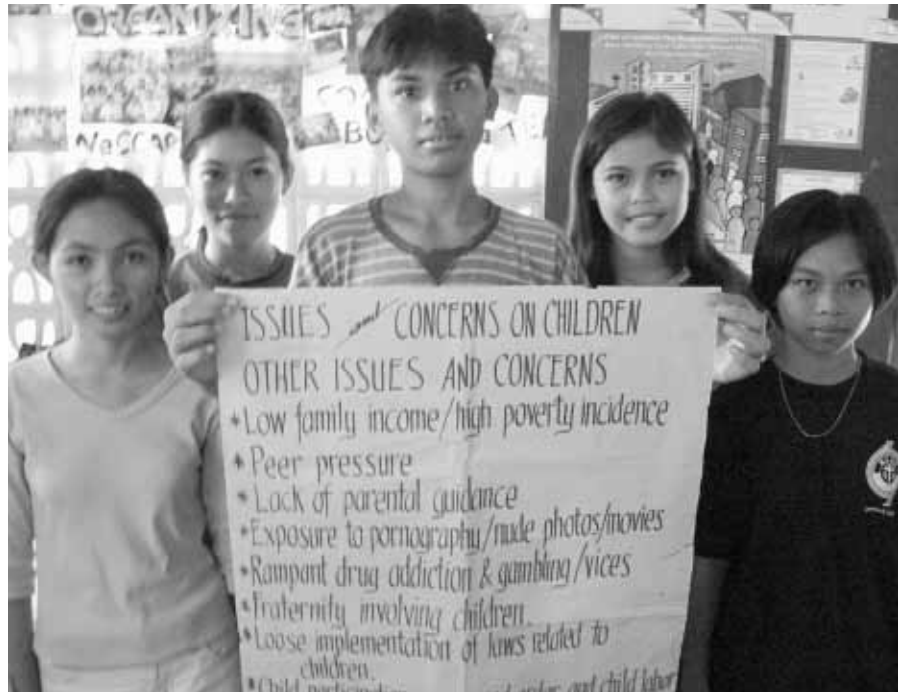 ORGANIZING
NaSCAP
ISSUES and CONCERNS ON CHILDREN
OTHER ISSUES AND CONCERNS
* Low family income/high poverty incidence
* Peer pressure
* Lack of parental guidance
* Exposure to pornography/nude photos/movies
* Rampant drug addiction & gambling/vices
* Fraternity involving children.
* Loose implementation of laws related to
children.
* Child and child labor